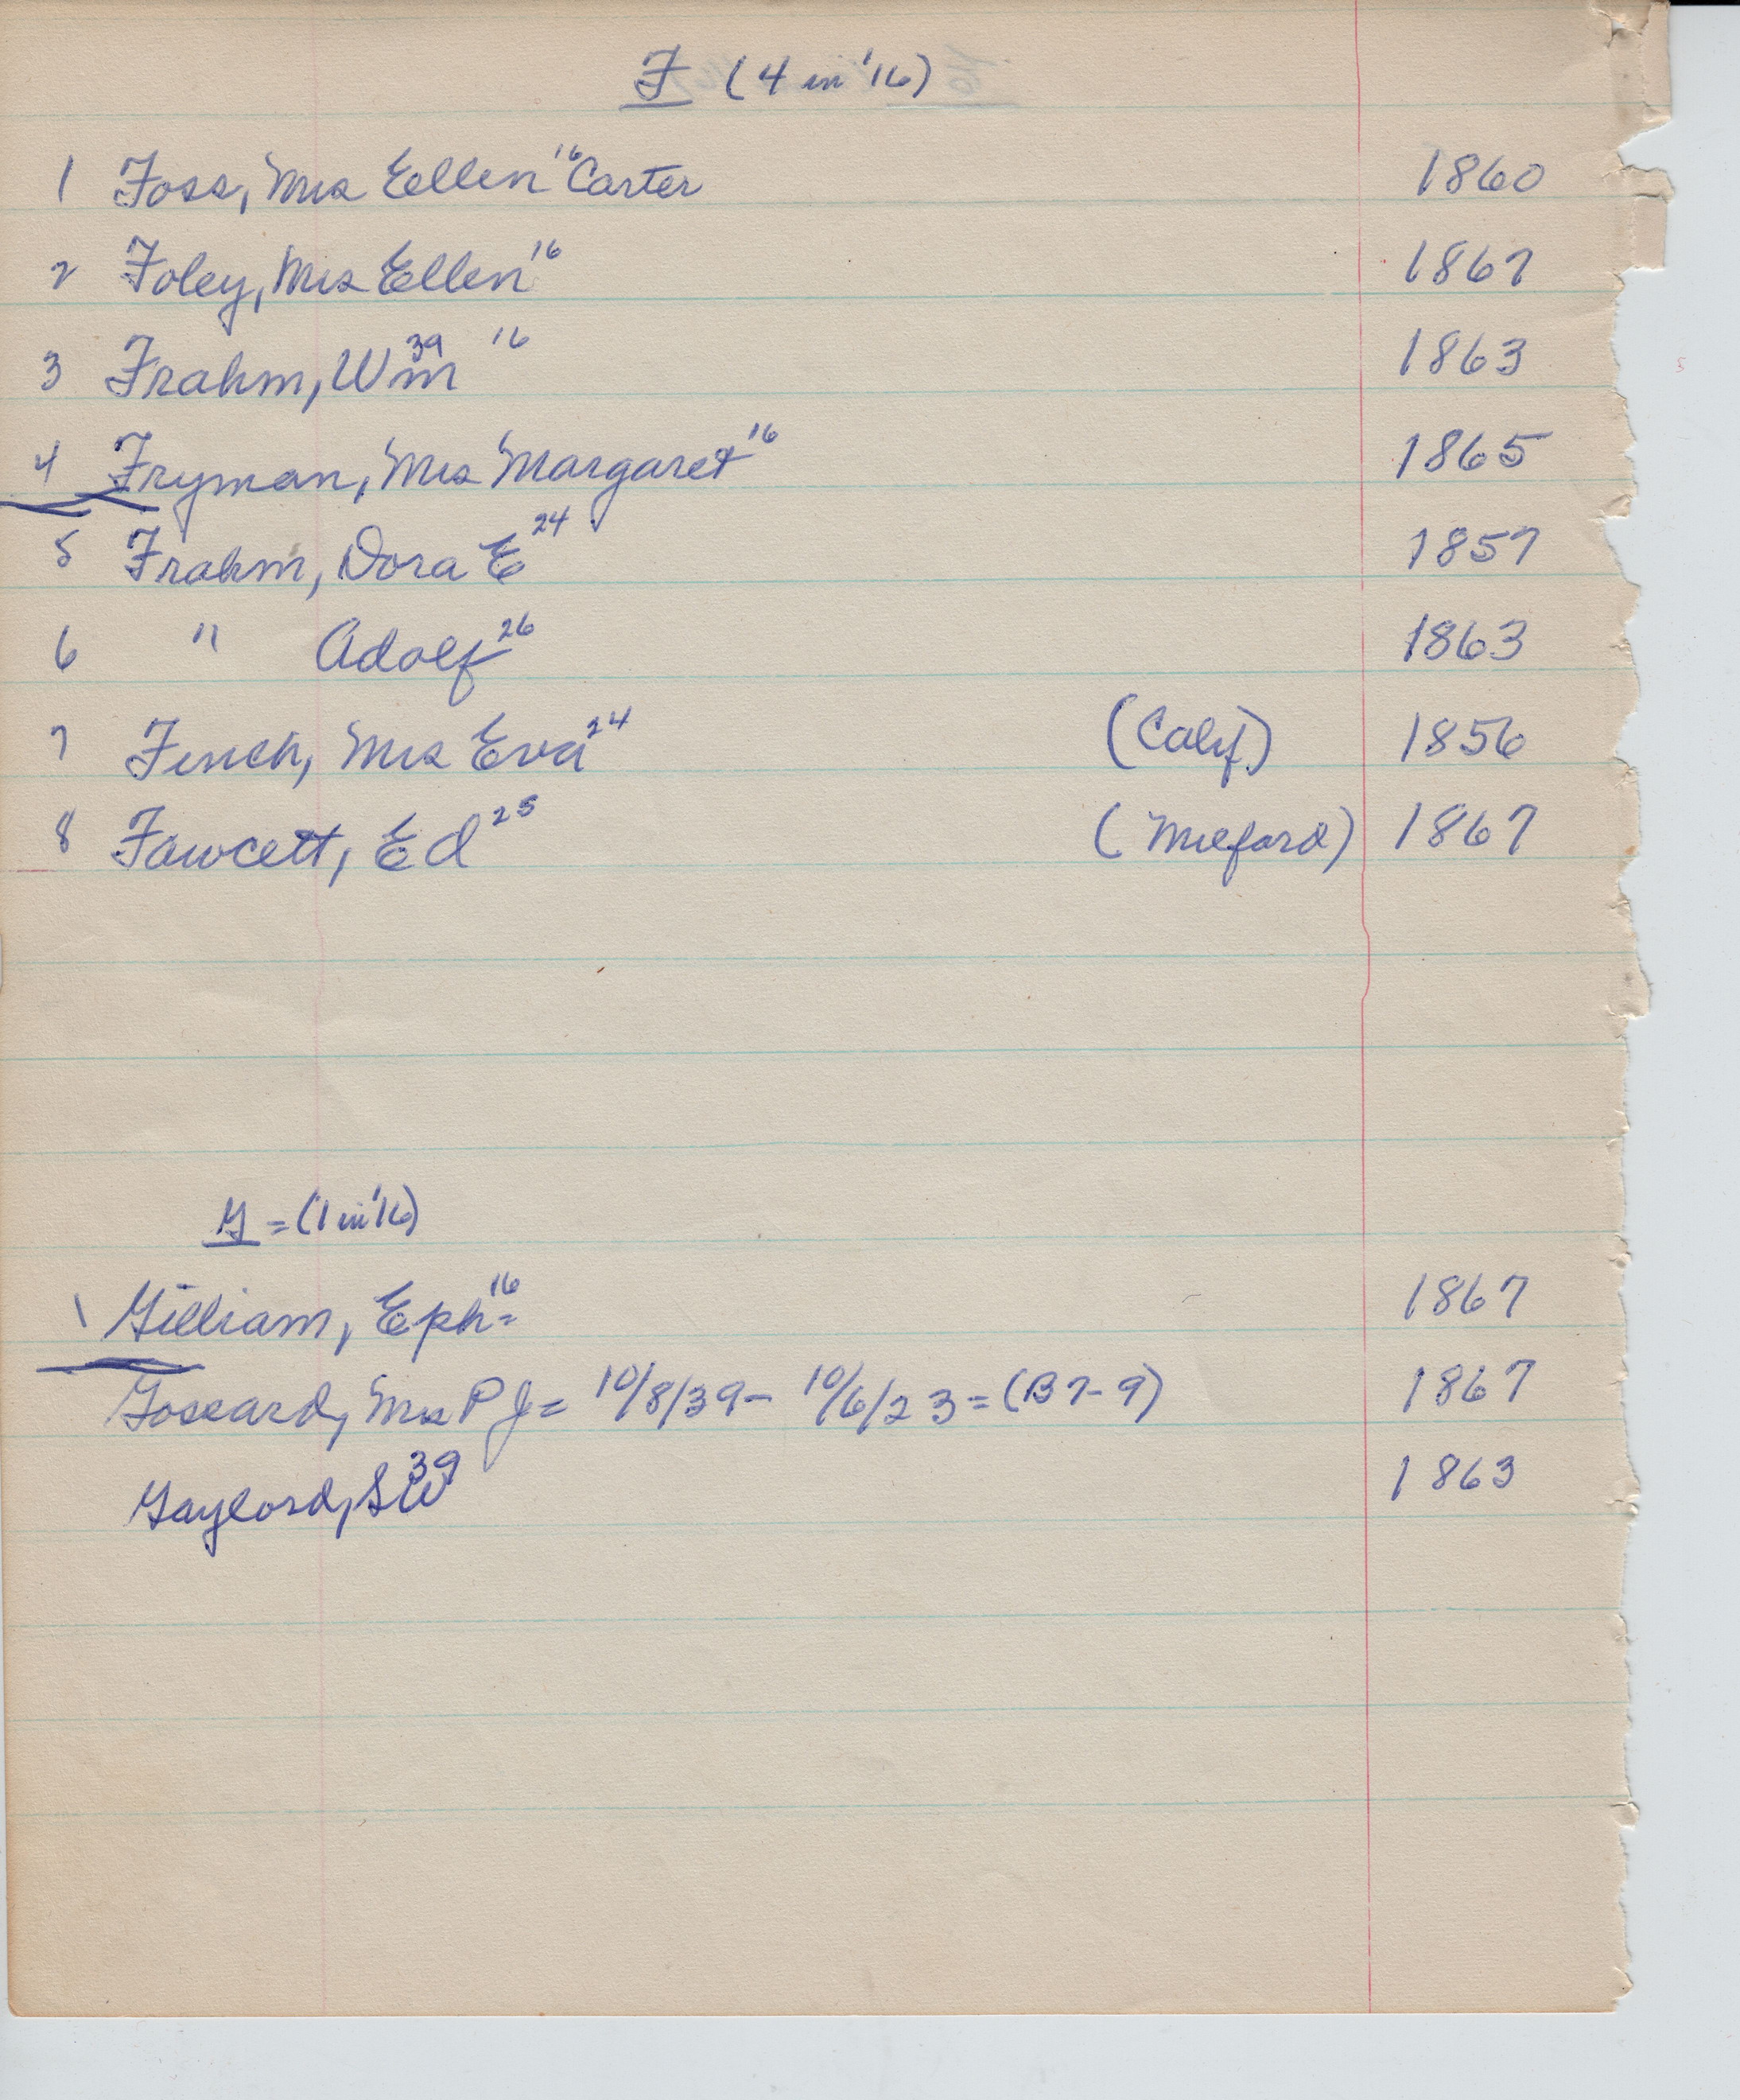 F (4 in '16)
1 Foss, Mrs Ellen 16 Carter 1860
2 Foley, Mrs Ellen 16 1867
3 Frahm, Wm 39 16 1863
4 Fryman, Mrs Margaret 16 1865
5 Frahm, Dora E 24 1857
6 " Adolf 26 1863
7 Finch, Mrs Eva 24 (Calif.) 1856
8 Fawcett, Ed 25 (Milford) 1867
G = (1 in '16)
1 Gilliam, Eph= 16 1867
Gossard, Mrs P J = 10/8/39 - 10/6/23 = (B7-9) 1867
Gaylord, SW 39 1863